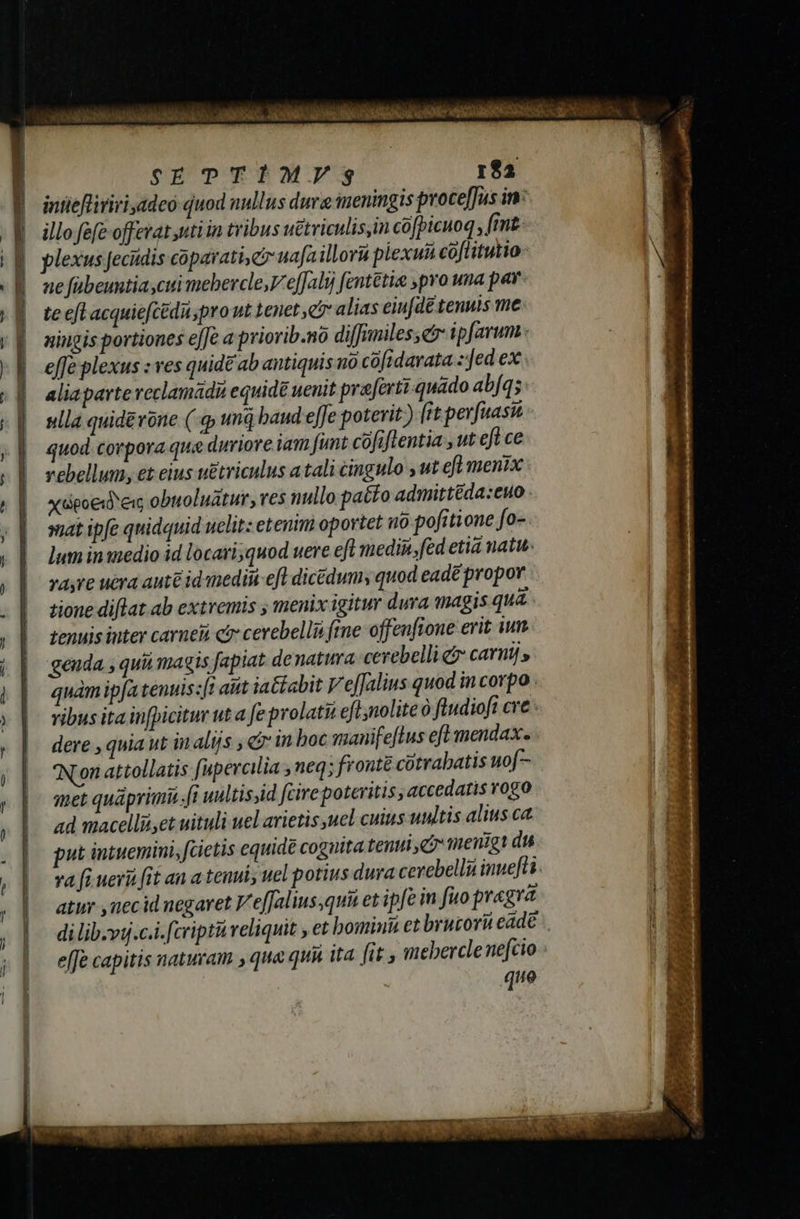 SEPTIMVS 182
inueſtiriri,adeo quod nullus duræ meningis proceſſus in
illo ſeſe offerat,uti in tribus uẽtriculis,in cõſpicuoq́, ſint
plexus ſecũdis cõparati,& uaſa illorũ plexuũ cõſtitutio
ne ſubeuntia,cui mehercle,Veſſalij ſentẽtiæ,pro una par
te eſt acquieſcẽdũ,pro ut tenet,& alias eiuſdẽ tenuis me
ningis portiones eſſe a priorib.nõ diſſimiles,& ipſarum
eſſe plexus : res quidẽ ab antiquis nõ cõſidarata : ſed ex
alia parte reclamãdũ equidẽ uenit præſertĩ quãdo abſq;
ulla quidẽ rõne ( ꝙ unq̃ haud eſſe poterit ) ſit perſuasũ
quod corpora quæ duriore iam ſunt cõſiſtentia , ut eſt ce
rebellum, et eius uẽtriculus a tali cingulo , ut eſt menĩx
χώροειδ'εις obuoluãtur, res nullo pacto admittẽda:euo
mat ipſe quidquid uelit: etenim oportet nõ poſitione ſo-
lum in medio id locari,quod uere eſt mediũ,ſed etiã natu
ra,re uera autẽ id mediũ eſt dicẽdum, quod eadẽ propor
tione diſtat ab extremis , menix igitur dura magis quã
tenuis inter carneũ & cerebellũ ſine offenſione erit iun
genda , quũ magis ſapiat de natura cerebelli & carnis,
quàm ipſa tenuis:ſi aũt iactabit Veſſalius quod in corpo
ribus ita inſpicitur ut a ſe prolatũ eſt,nolite ò ſtudioſi cre
dere , quia ut in alijs , & in hoc manifeſtus eſt mendax.
Non attollatis ſupercilia , neq; frontẽ cõtrahatis uoſ-
met quãprimũ.ſi uultis,id ſcire poteritis, accedatis rogo
ad macellũ,et uituli uel arietis,uel cuius uultis alius ca
put intuemini,ſcietis equidẽ cognita tenui,& menĩgi du
ra ſi uerũ ſit an a tenui, uel potius dura cerebellũ inueſti
atur ,nec id negaret Veſſalius,quũ et ipſe in ſuo prægrã
di lib.vij.c.i.ſcriptũ reliquit , et hominũ et brutorũ eãdẽ
eſſe capitis naturam , quæ quũ ita ſit , mehercle neſcio
quo